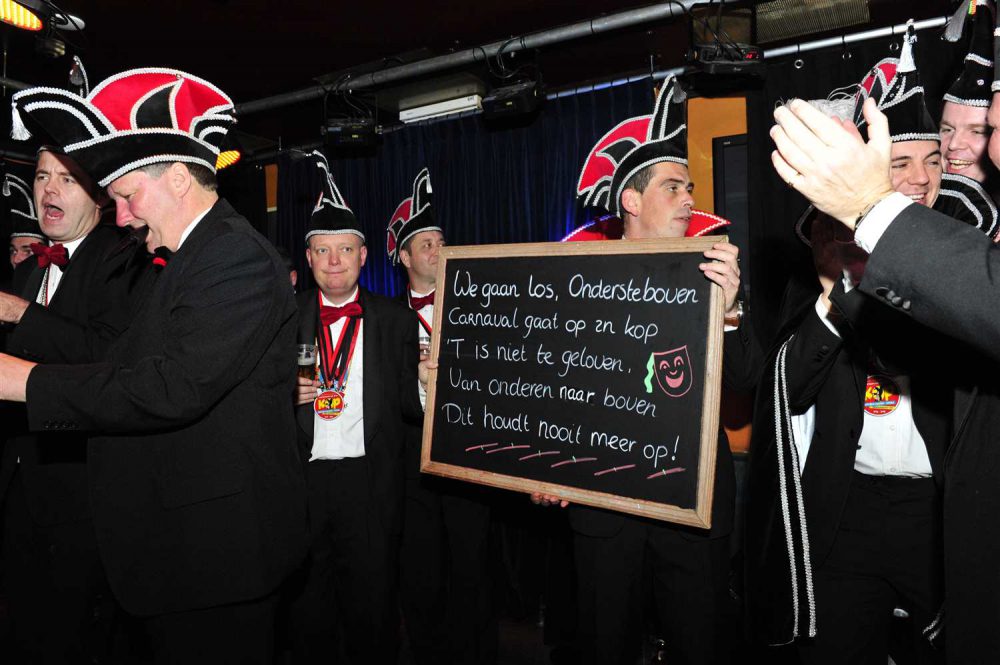 We gaan los, Ondersteboven
Carnaval gaat op zn kop
'T is niet te geloven,
Van onderen naar boven
Dit houdt nooit meer op!
KOP
KOP